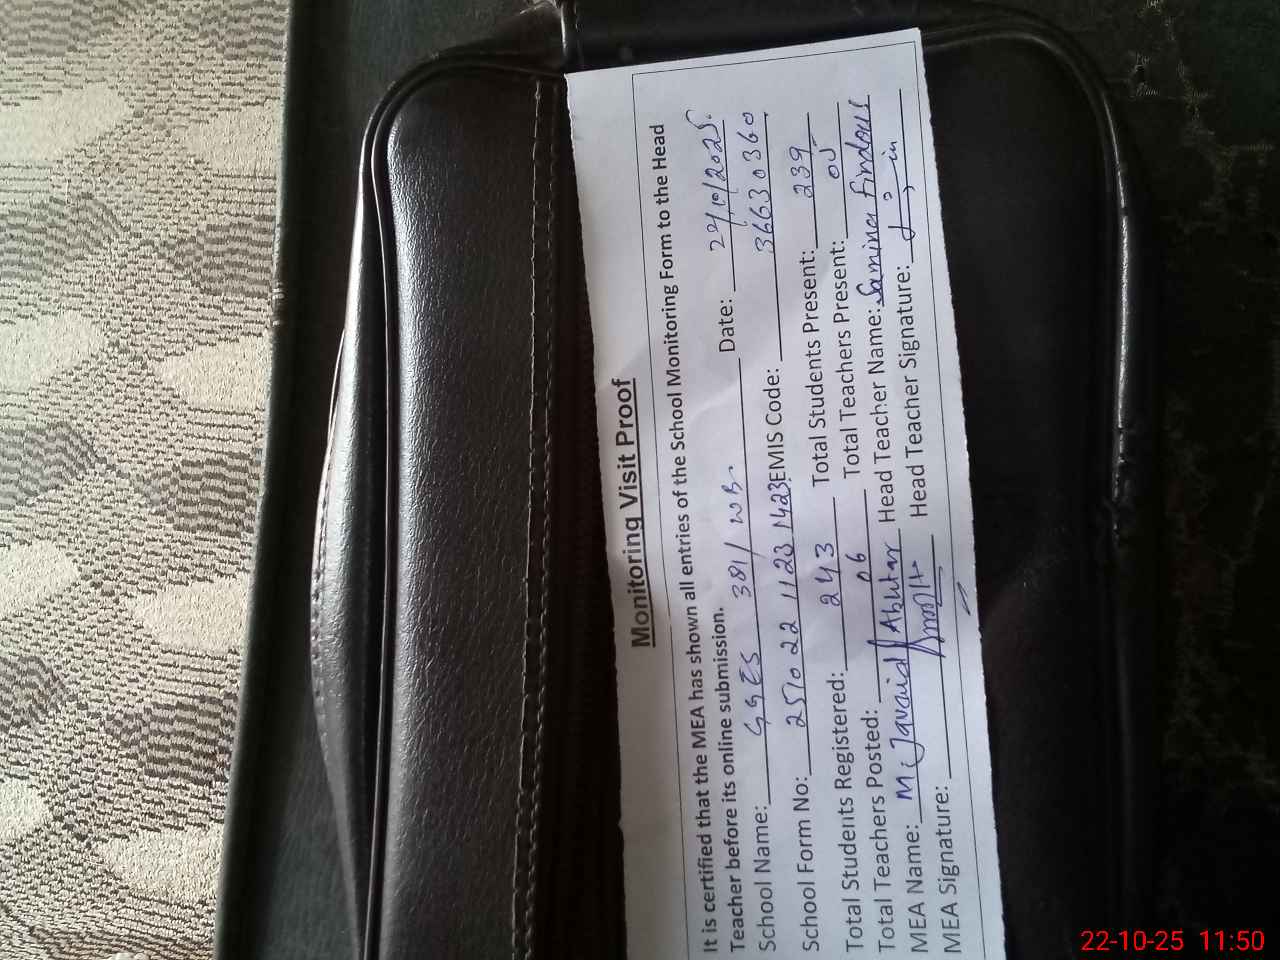 Monitoring Visit Proof
It is certified that the MEA has shown all entries of the School Monitoring Form to the Head
Teacher before its online submission.
School Name: GGES 381/WB. Date: 22/10/2025.
School Form No: 251022 1123 1423 EMIS Code: 36630360
Total Students Registered: 243 Total Students Present: 239
Total Teachers Posted: 06 Total Teachers Present: 05
MEA Name: M. Javaid Akhtar Head Teacher Name: Samina Firdous
MEA Signature: Head Teacher Signature:
22-10-25 11:50